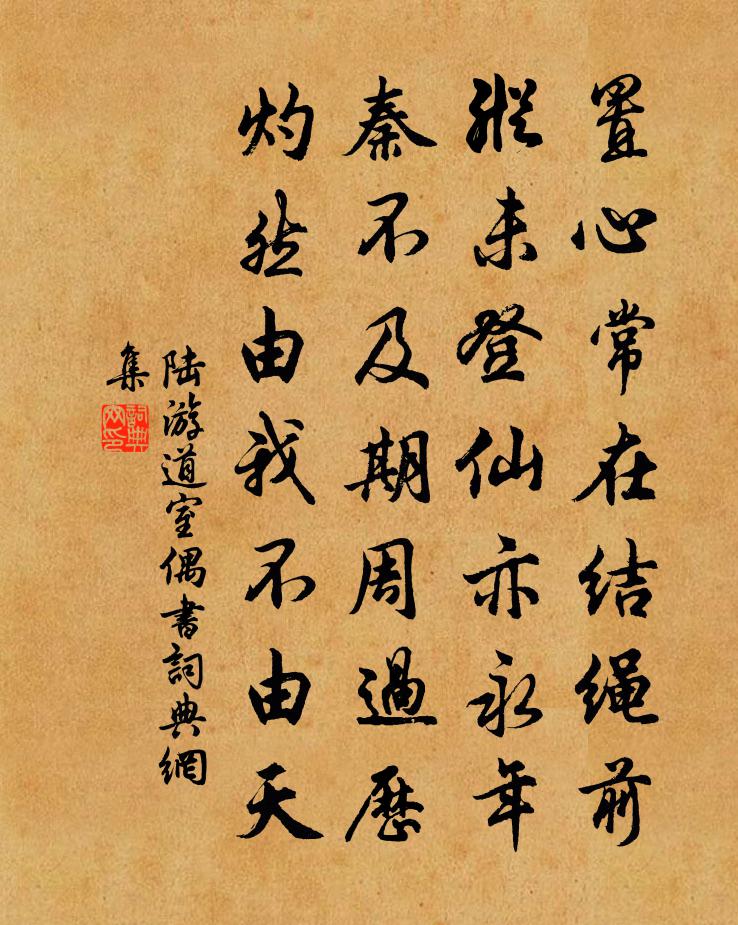 置心常在结绳前
纵未登仙亦永年
秦不及期周過歷
灼然由我不由天
陆游道室偶書詞典網
集
詞典
网印